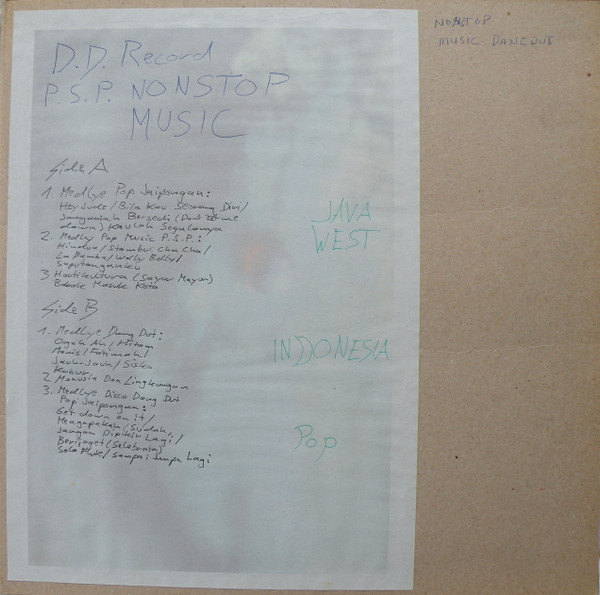 D.D. Record
P.S.P. NONSTOP
MUSIC
Side A
1. Medlye Pop Jaipongan:
Hey Jude/Bila Kau Seorang Diri/
Janganlah Bersedi (Dont let me
down) Kaulah Segalanya
2. Medley Pop Music P.S.P.:
Hindun/Stambul Cha Cha/
La Bamba/Wolly Bolly/
Saputanganku
3 Hortikultura (Sayur Mayur)
Babale Masuk Kota
Side B
1. Medlye Dang Dut:
Ogah Ah/Hitam
Manis/Fatimah/
Jauh-Jauh/Siska
Kubur
2 Manusia Dan Lingkungan
3. Medlye Disco Dang Dut
Pop Jaipongan:
Get down on it/
Mengapakah/Sudah,
Jangan Dipilih Lagi/
Berjoget (Selebrate)
Solo Flute/Sampai Jumpa Lagi
JAVA
WEST
INDONESIA
Pop
NONSTOP
MUSIC DANGDUT